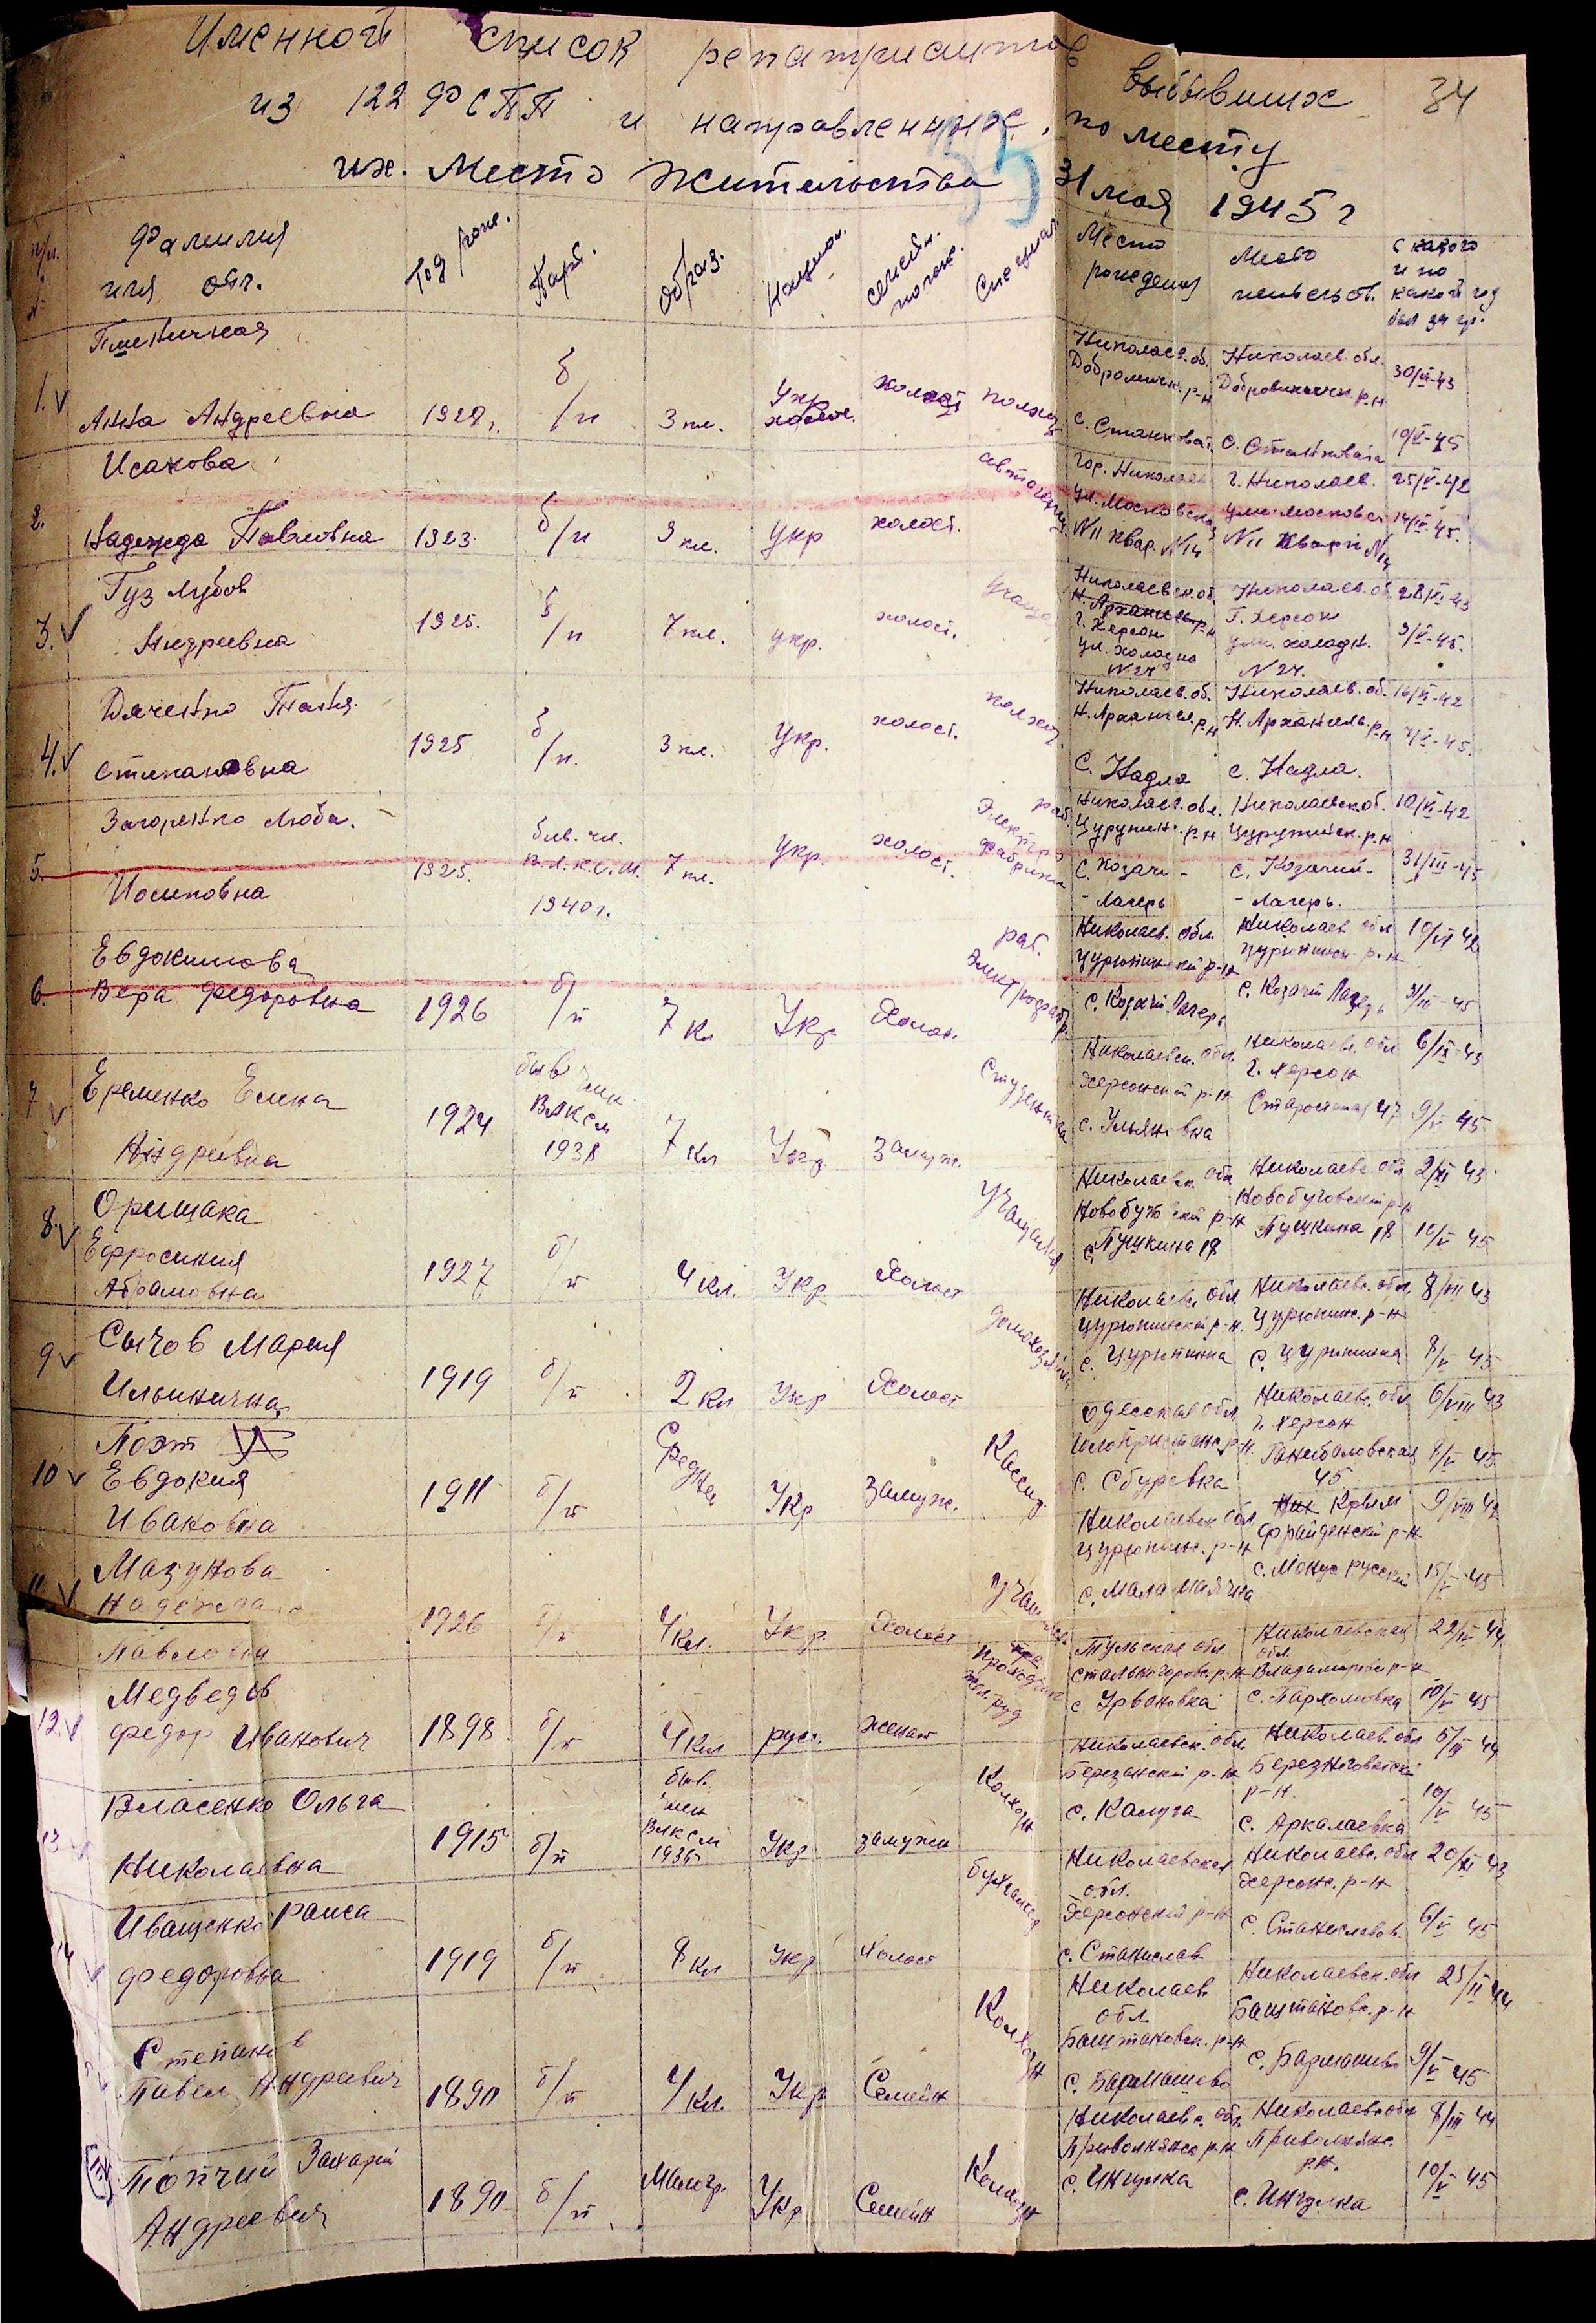 Именной список репатриантов выбывших 34
из 122 ФСПП и направленных по месту
их. Место жительства 31 мая 1945 г
Фамилия имя отч.
Год рожд.
Парт.
Образ.
Национ.
семейн. полож.
Специал.
Место рождения
Место жительств.
с какого и по какой год был за гр.
1. Пшеничная Анна Андреевна
1927 г. б/п 3 кл. Укр. холост колхоз.
Николаев. об. Добровилич. р-н с. Станковат.
Николаев. обл. Добровиличк. р-н с. Станковата
30/VI-43 19/V-45
2. Исакова Надежда Павловна
1923 б/п 9 кл. Укр холост.
гор. Николаев ул. Московская N11 квар. N14
г. Николаев. ул. Московск. N11 кварт N14
25/V-42 14/IV-45.
3. Гуз Любов Андреевна
1925. б/п 7 кл. укр. холост.
Николаевск. об. г. Херсон ул. холодна N 24
Николаев. об. Г. Херсон ул. холодн. N 24.
9/V-45.
4. Дяченко Таня Степановна
1925 б/п. 3 кл. Укр. холост. колхоз.
Николаев. об. Н. Архангел. р-н С. Надла
Николаев. об. Н. Архангель. р-н с. Надла.
16/VI-42
5. Загоренко Люба. Иосиповна
1925. быв. чл. В.Л.К.С.М. 1940 г. 7 кл. укр. холост. раб. Электро фабрики
Николаев. обл. Цурупин. р-н с. Козачи - - Лагерь
Николаевск. об. Цурупинск. р-н с. Козачий - - Лагерь.
10/VI-42 31/III-45
6 Евдокимова Вера Федоровна
1926 б/п 7 Кл Укр Холост.
Николаев. обл. Цурюпинский р-н с. Козачи Лагерь
Николаев обл Цурюпинск р-н с. Козачи Лагерь
10/VI 42 31/III-45
7 Еременко Елена Андреевна
1924 быв член ВЛКСМ 1938 7 Кл Укр. замуж. Студентка
Николаевск. обл. Херсонский р-н с. Ульяновка
Николаевс. обл г. Херсон 47
6/IX-43 9/V 45
8. Орищака Ефросиния Абрамовна
1927 б/п 4 Кл. Укр Холост учащаяся
Николаевск. обл Новобугский р-н с. Пушкина 18
Николаевс. обл Новобуговский р-н Пушкина 18
2/XI 43 10/V 45
9 Сычов Мария Ильинична
1919 б/п 2 Кл Укр Холост домохозяйка
Николаевс. обл Цурюпинский р-н. с. Цурюпинка
Николаевс. обл. Цурюпинс. р-н с. Цурюпинка
8/V 45
10 Поэт Евдокия Ивановна
1911 б/п Средня Укр замуж. Кассир
Одесская обл Голопристанс. р-н. с. Збуревка
Николаевс. обл г. Херсон Ганибаловская 45
6/VIII 43 8/V 45
11 Мазунова Надежда Павловна
1926 б/п 4 Кл. Укр. Холост
Николаевск обл Цурюпинс. р-н с. Мала Маячка
Крым Фрайденский р-н
9/VIII 42 15/V 45
12. Медведев Федор Иванович
1898 б/п 4 Кл русс. женат
Тульская обл Сталиногорск. р-н с. Урвановка
Николаевская обл. Владимиров р-н с. Пархомовка
10/V 45
13 Власенко Ольга Николаевна
1915 б/п быв. член ВЛКСМ 1936 г Укр замужн Колхозн
Николаевск. обл Березанский р-н с. Калуга
Николаев обл Березнеговатский р-н.
10/V 45
14 Иващенко Раиса Федоровна
1919 б/п 8 Кл Укр Холост бухгалтер
Николаевская обл. Херсонский р-н с. Станислав
Николаевс. обл Херсонс. р-н с. Станиславов.
20/XI 43 6/V 45
Степанов Павел Андреевич
1890 б/п 4 Кл. Укр Семейн Колхозн
Николаев обл. Баштановск. р-н с. Бармашево
Николаевск. обл Баштановс. р-н с. Бармашево
9/V 45
Топчий Захарий Андреевич
1890 б/п Малогр. Укр Семейн Колхозн
Николаевс. обл. Привольянс р-н с. Ингулка
Николаевс обл Привольянс. р-н. с. Ингулка
8/III 44 10/V 45